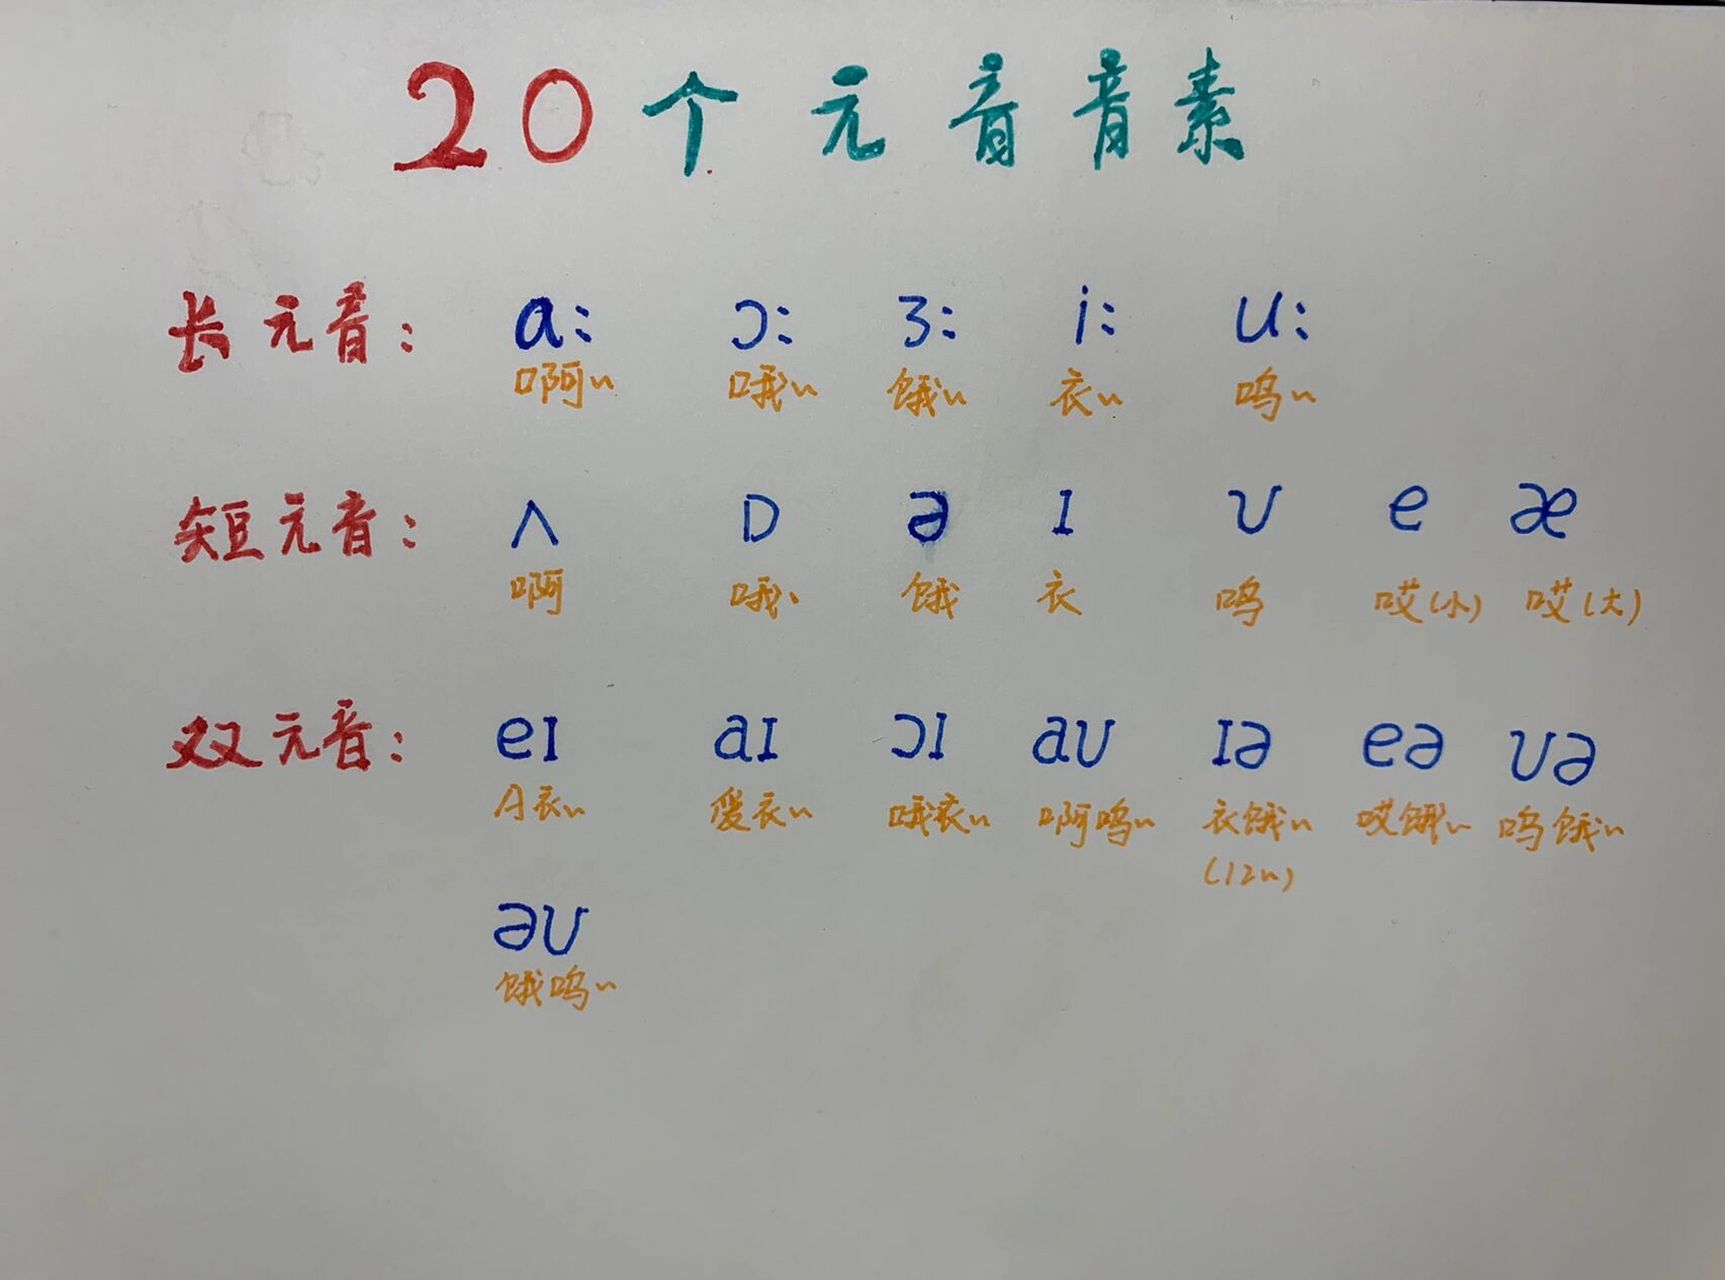 20个元音音素
长元音： ɑ: ɔ: ɜ: i: u:
啊~ 哦~ 饿~ 衣~ 呜~
短元音： ʌ ɒ ə ɪ ʊ e æ
啊 哦、 饿 衣 呜 哎(小) 哎(大)
双元音： eɪ aɪ ɔɪ aʊ ɪə eə ʊə
A衣~ 爱衣~ 哦衣~ 啊呜~ 衣饿~ 哎饿~ 呜饿~
(12~)
əʊ
饿呜~